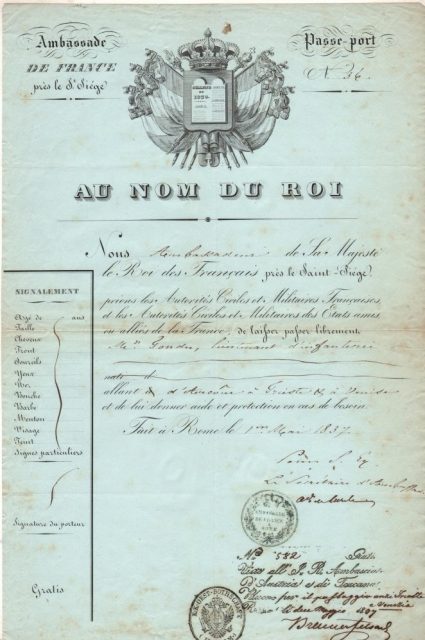 Ambassade
DE FRANCE
près le St. Siège
Passe-port
N° 36
CHARTE
DE
1830
AU NOM DU ROI
Nous Ambassadeur de Sa Majesté
le Roi des Français près le Saint-Siège,
prions les Autorités Civiles et Militaires Françaises,
et les Autorités Civiles et Militaires des Etats amis
ou alliés de la France, de laisser passer librement
Mr. Gondre, lieutenant d'infanterie
natif de
allant d'Ancône à Trieste & à Venise
et de lui donner aide et protection en cas de besoin
Fait à Rome le 1er Mai 1837
SIGNALEMENT
Agé de ans
Taille
Cheveux
Front
Sourcils
Yeux
Nez
Bouche
Barbe
Menton
Visage
Teint
Signes particuliers
Signature du porteur
Gratis
Le Secrétaire d'Ambassade
AMBASSADE
DE FRANCE
A
ROME
No. 582 Gratis
Visto all' I. R. Ambasciata
d'Austria e di Toscana
buono per il passaggio
a Venezia
Roma li due Maggio 1837